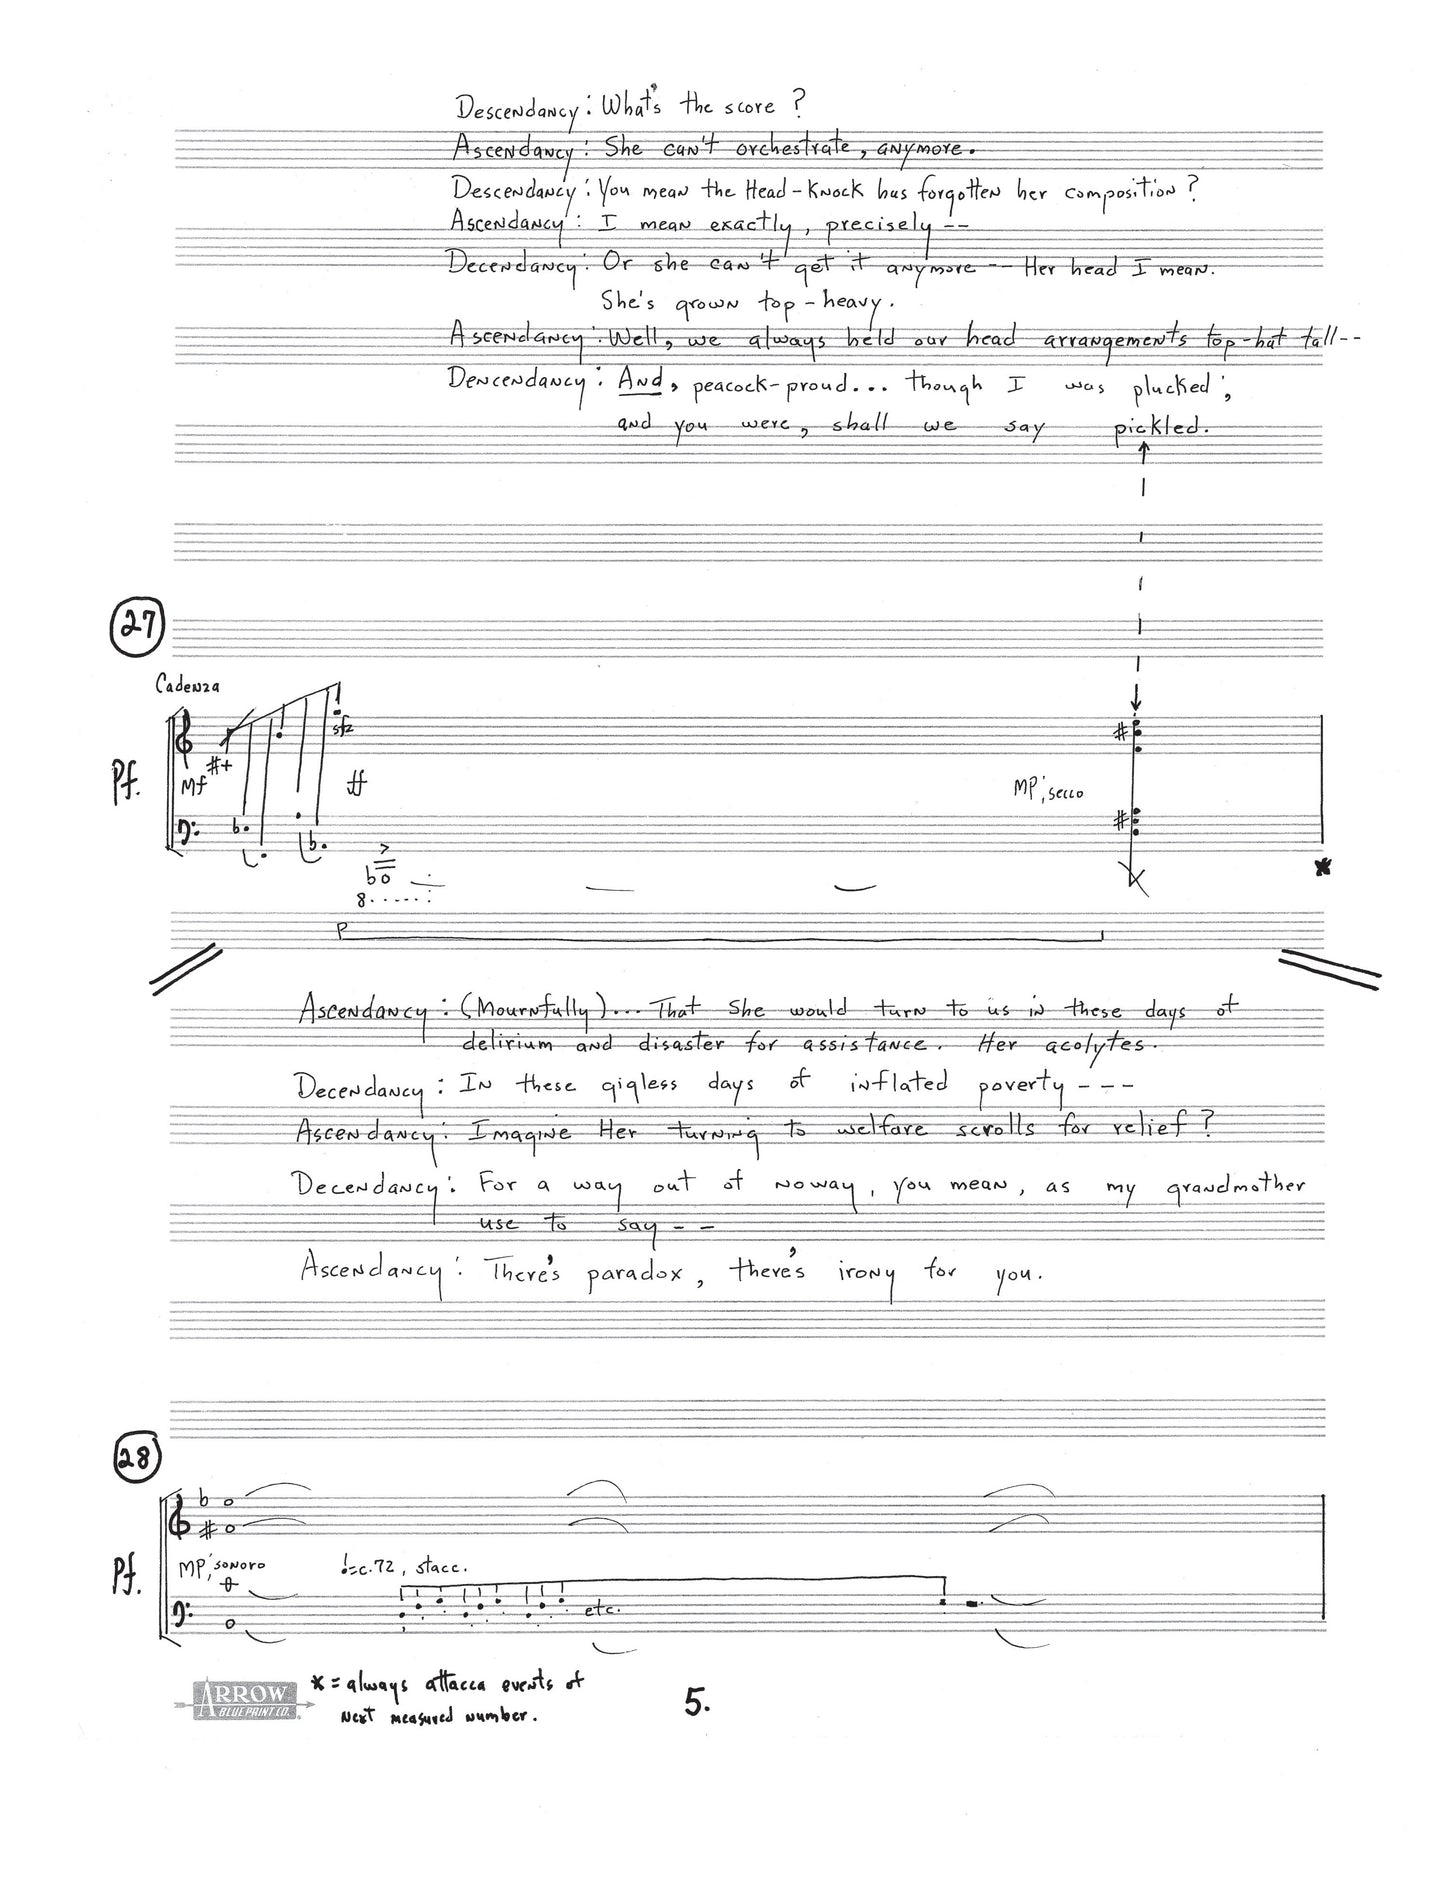 Descendancy: What's the score?
Ascendancy: She can't orchestrate, anymore.
Descendancy: You mean the Head-Knock has forgotten her composition?
Ascendancy: I mean exactly, precisely --
Decendancy: Or she can't get it anymore -- Her head I mean.
She's grown top-heavy.
Ascendancy: Well, we always held our head arrangements top-hat tall--
Dencendancy: And, peacock-proud... though I was plucked;
and you were, shall we say pickled.
27
Cadenza
sfz
Pf.
Mf
ff
MP, secco
8......
P
Ascendancy: (Mournfully)... That she would turn to us in these days of
delirium and disaster for assistance. Her acolytes.
Decendancy: In these gigless days of inflated poverty ---
Ascendancy: Imagine Her turning to welfare scrolls for relief?
Decendancy: For a way out of noway, you mean, as my grandmother
use to say --
Ascendancy: There's paradox, there's irony for you.
28
Pf.
MP, sonoro
♩=c.72, stacc.
etc.
* = always attacca events of
next measured number.
ARROW
BLUEPRINT CO.
5.